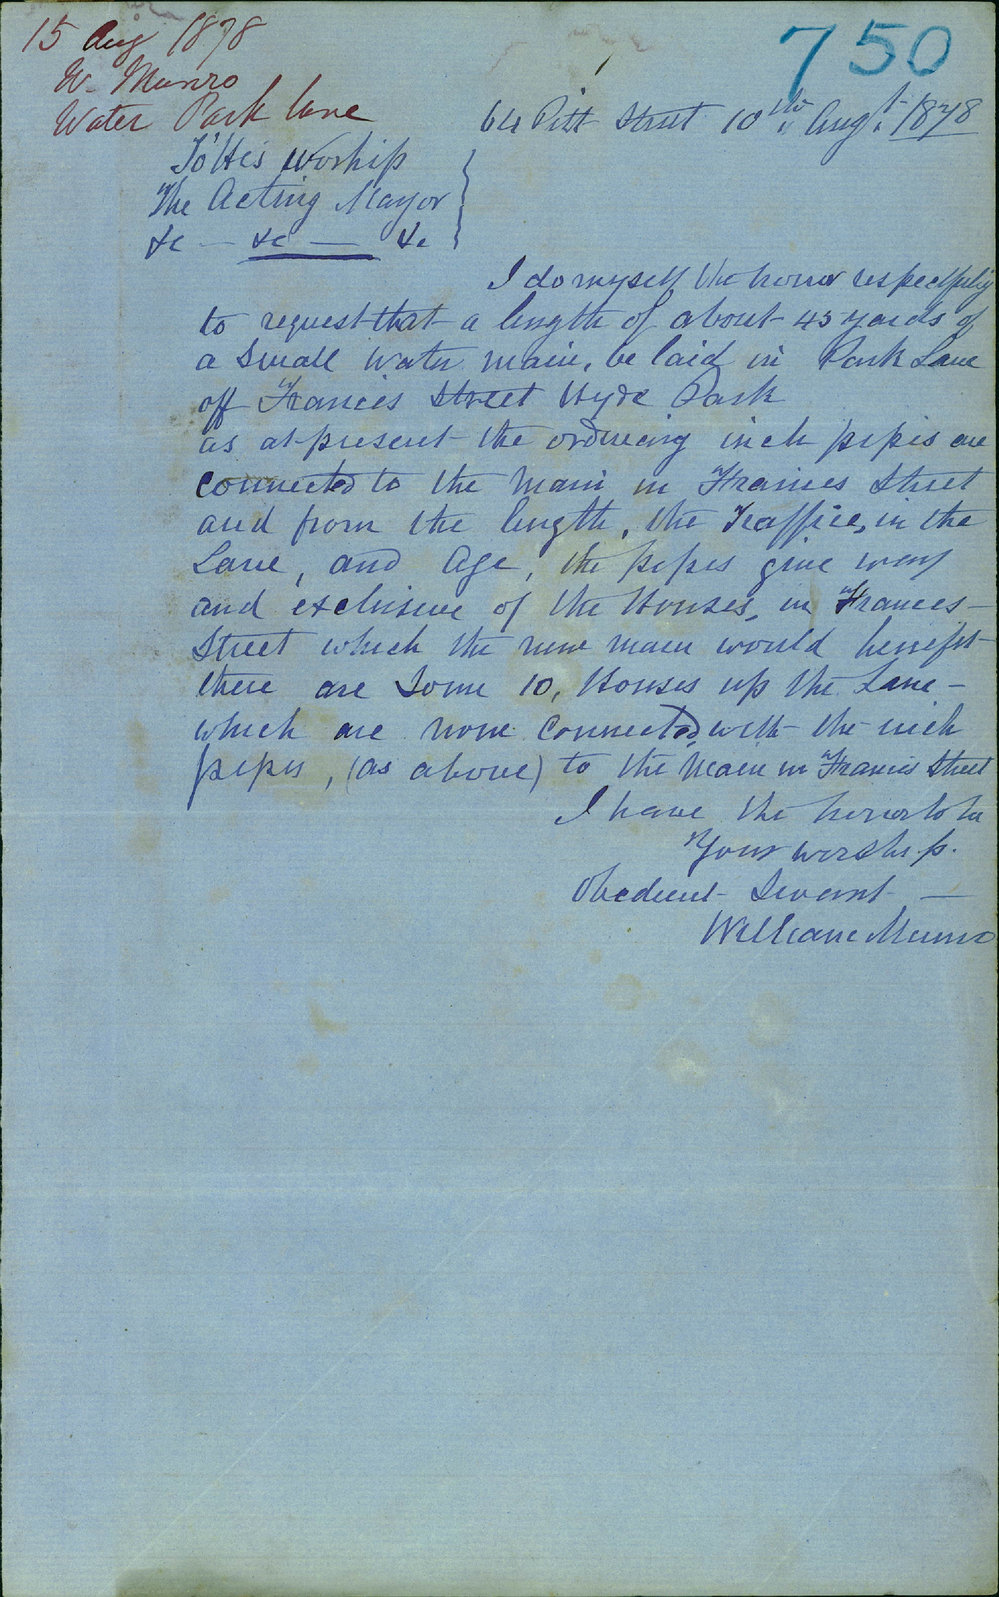 15 Aug 1878
W. Munro
Water Park lane
750
64 Pitt Street 10th Augt. 1878
To His Worship
The Acting Mayor
&c — &c — &c
I do myself the honor respectfully
to request that a length of about 45 yards of
a Small water main, be laid in Park Lane
off Francis Street Hyde Park
as at present the ordinary inch pipes are
connected to the Main in Francis Street
and from the length, the Traffice, in the
Lane, and Age, the pipes give way
and exclusive of the Houses, in Frances
Street which the new main would benefit
there are Some 10, Houses up the Lane
which are now connected with the inch
pipes, (as above) to the Main in Francis Street
I have the honor to be
Your worship.
Obedient Servant —
William Munro